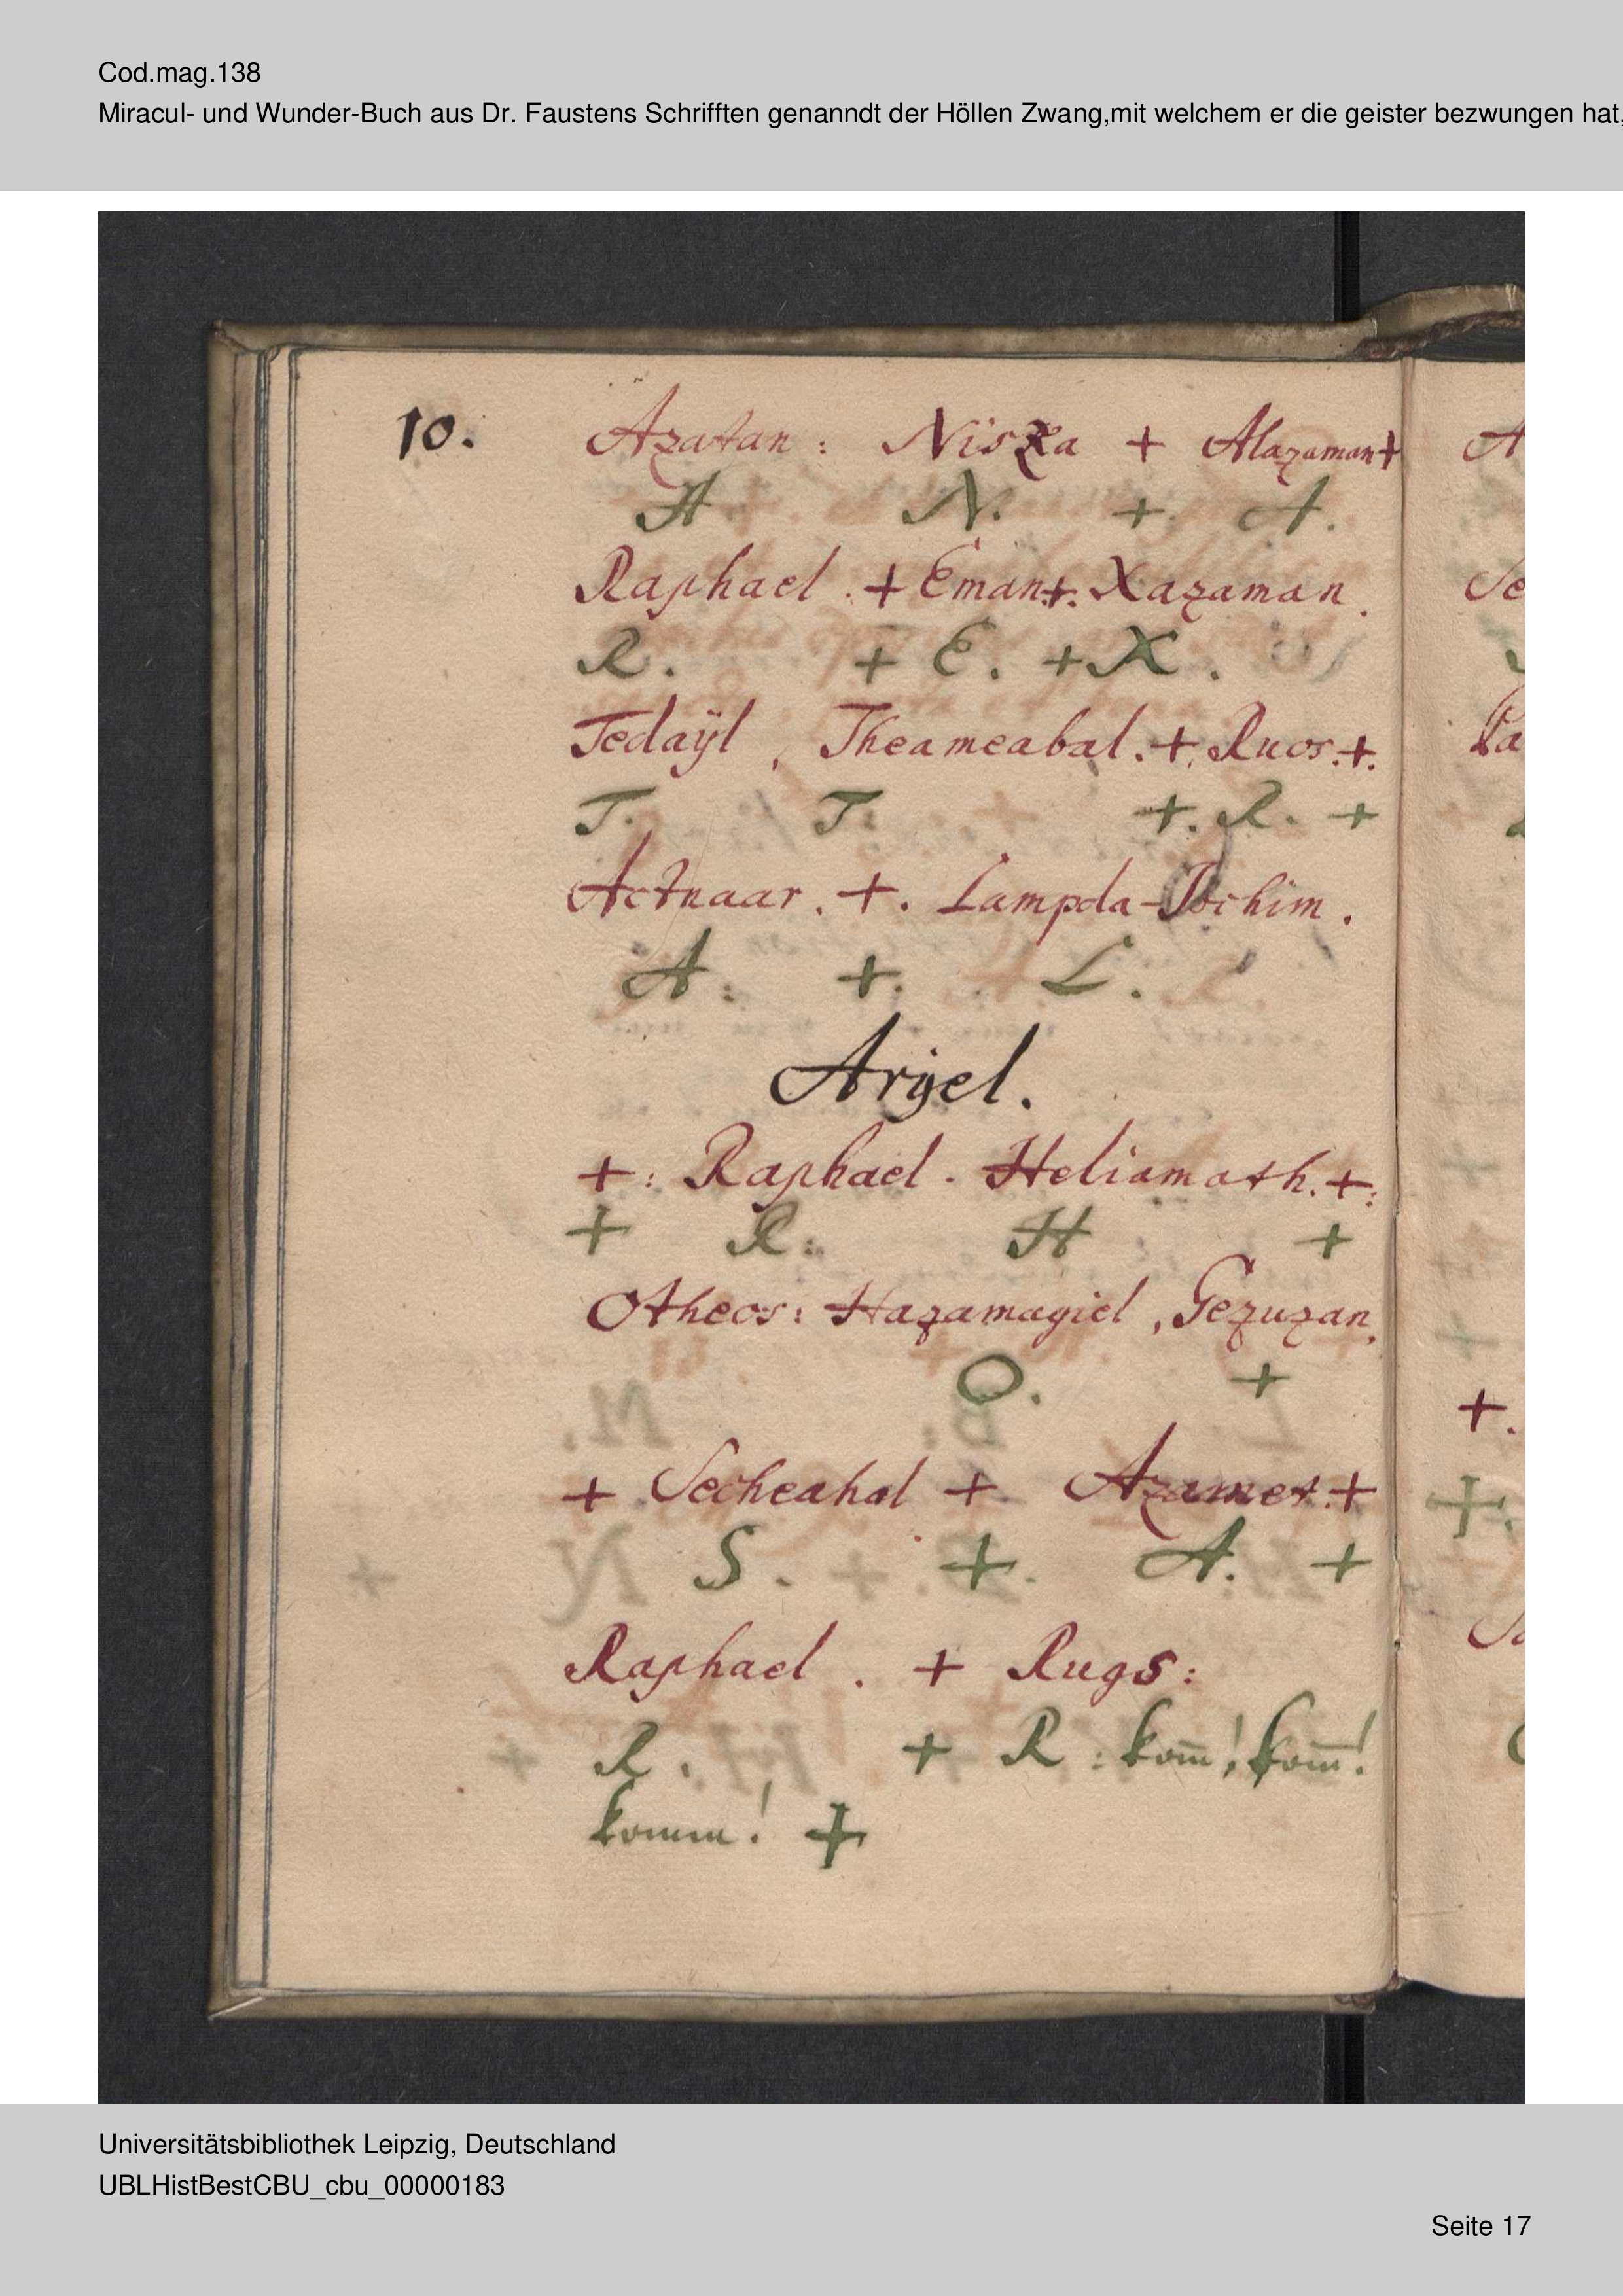 Cod.mag.138
Miracul- und Wunder-Buch aus Dr. Faustens Schrifften genanndt der Höllen Zwang,mit welchem er die geister bezwungen hat,
10. Azatan : Nisza + Alazaman +
A. N. +. A.
Raphael . + Eman +. Xazaman .
R. + E. + X .
Tedaÿl , Theameabal . +. Ruos . +.
T. T. +. R. +
Actnaar . +. Lampda-Jochim .
A : +. L .
Arÿel .
+ : Raphael . Heliamath . + :
+ R : H +
Otheos : Hazamagiel , Gezuzan ,
O. +
+ Secheahal + Azamet . +
S . + . A. +
Raphael . + Rugs :
R . + R : kom̅ ! kom̅ !
komm ! +
Universitätsbibliothek Leipzig, Deutschland
UBLHistBestCBU_cbu_00000183
Seite 17